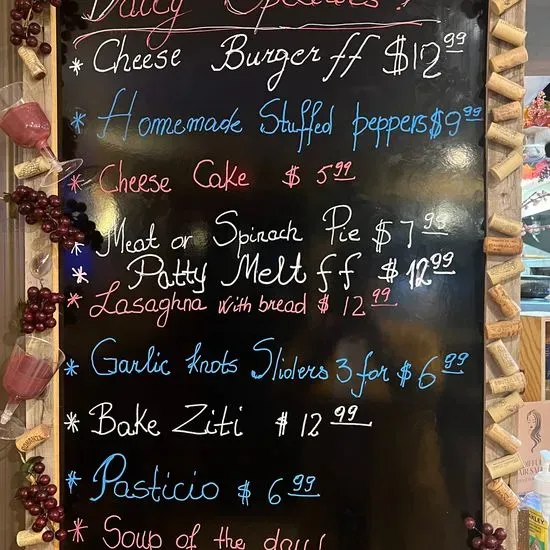 Daily Specials!
* Cheese Burger ff $12.99
* Homemade Stuffed peppers $9.99
* Cheese Cake $5.99
* Meat or Spinach Pie $7.99
* Patty Melt ff $12.99
* Lasaghna with bread $12.99
* Garlic knots Sliders 3 for $6.99
* Bake Ziti $12.99
* Pasticio $6.99
* Soup of the day!